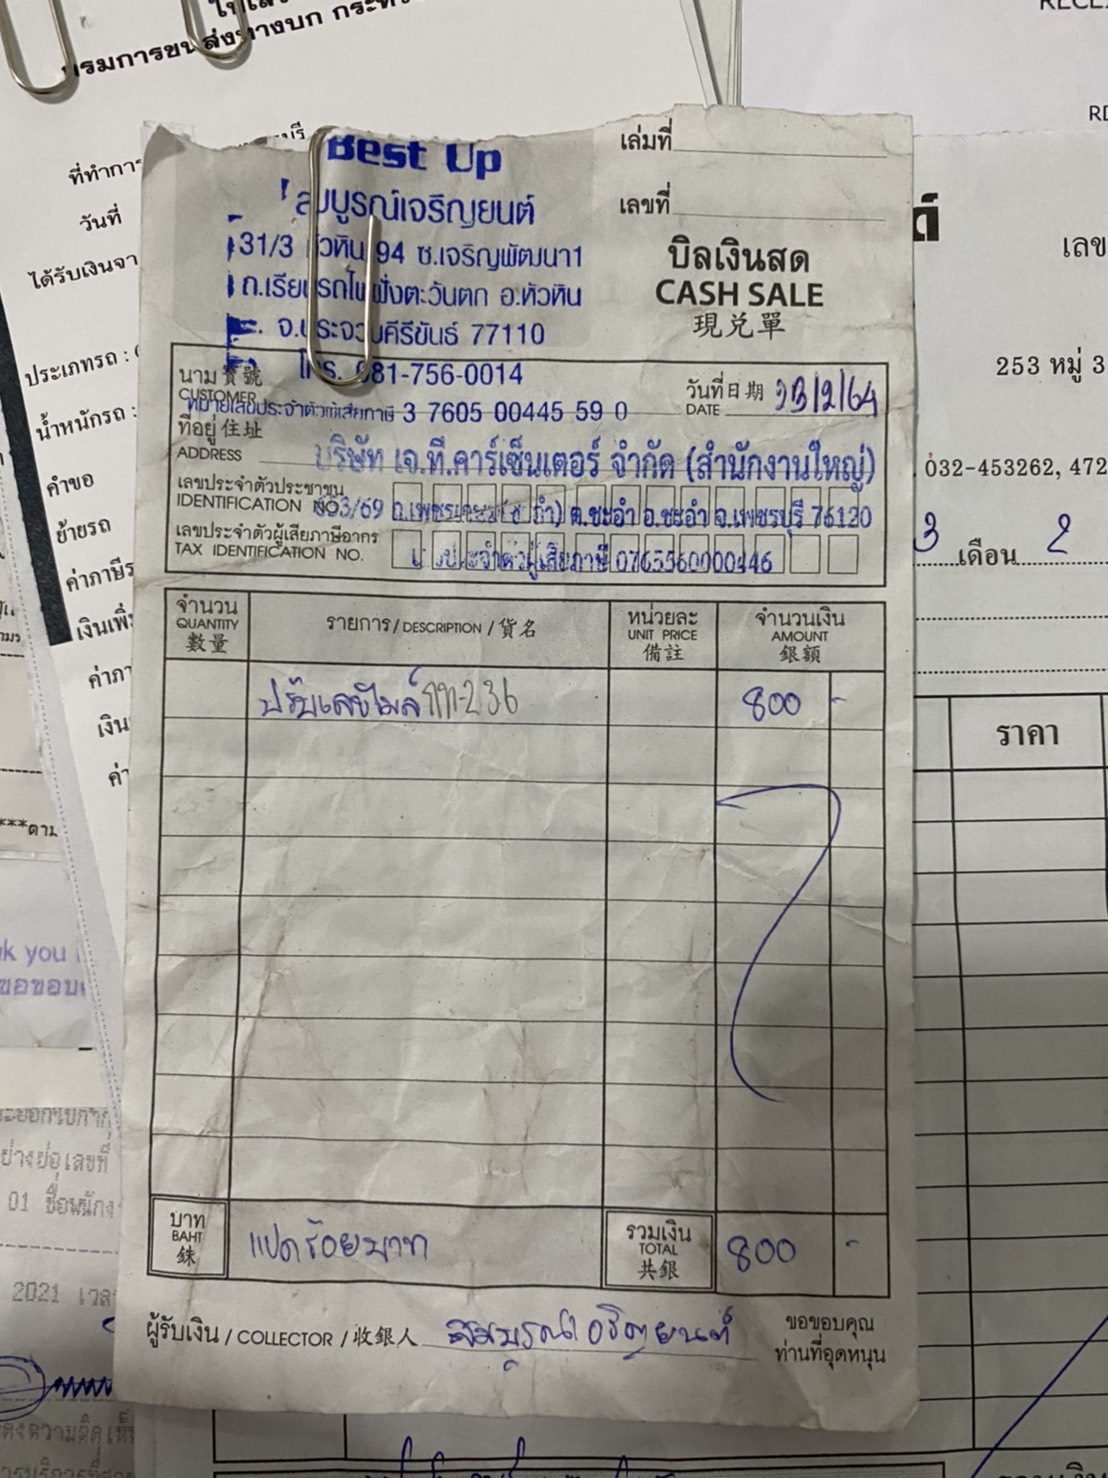 Best Up
สมบูรณ์เจริญยนต์
31/3 หัวหิน 94 ซ.เจริญพัฒนา1
ถ.เรียบรถไฟฝั่งตะวันตก อ.หัวหิน
จ.ประจวบคีรีขันธ์ 77110
โทร. 081-756-0014
หมายเลขประจำตัวผู้เสียภาษี 3 7605 00445 59 0
เล่มที่
เลขที่
บิลเงินสด
CASH SALE
現兌單
นาม 寶號
CUSTOMER
วันที่ 日期 DATE 23/2/64
ที่อยู่ 住址
ADDRESS
บริษัท เจ.ที.คาร์เซ็นเตอร์ จำกัด (สำนักงานใหญ่)
เลขประจำตัวประชาชน
IDENTIFICATION NO.
ต.ชะอำ อ.ชะอำ จ.เพชรบุรี 76120
เลขประจำตัวผู้เสียภาษีอากร
TAX IDENTIFICATION NO.
ประจำตัวผู้เสียภาษี 0765560000446
จำนวน QUANTITY 數量
รายการ / DESCRIPTION / 貨名
หน่วยละ UNIT PRICE 備註
จำนวนเงิน AMOUNT 銀額
ปรับเลขไมล์ กก-236 800 -
บาท BAHT 銖
แปดร้อยบาท
รวมเงิน TOTAL 共銀
800 -
ผู้รับเงิน / COLLECTOR / 收銀人 สมบูรณ์เจริญยนต์
ขอขอบคุณ
ท่านที่อุดหนุน
กรมการขนส่งทางบก
วันที่
ประเภทรถ :
น้ำหนักรถ :
คำขอ
ย้ายรถ
253 หมู่ 3
032-453262, 472
3 เดือน 2
ราคา
2021